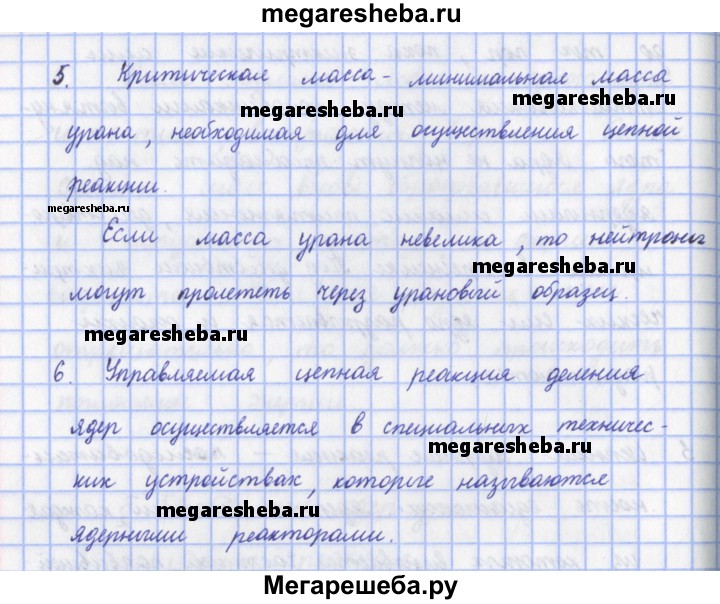 megaresheba.ru
5. Критическая масса - минимальная масса
megaresheba.ru
megaresheba.ru
урана, необходимая для осуществления цепной
реакции.
megaresheba.ru
Если масса урана невелика, то нейтроны
megaresheba.ru
могут пролететь через урановый образец.
megaresheba.ru
6. Управляемая цепная реакция деления
ядер осуществляется в специальных техничес-
megaresheba.ru
ких устройствах, которые называются
megaresheba.ru
ядерными реакторами.
Мегарешеба.ру